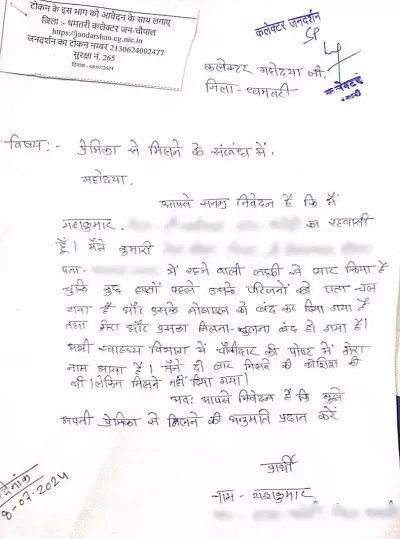 टोकन के इस भाग को आवेदन के साथ लगाए
जिला :- धमतरी कलेक्टर जन-चौपाल
https://jandarshan.cg.nic.in
जनदर्शन का टोकन नम्बर 2130624002477
सुरक्षा नं. 265
दिनांक - 08/07/2024
कलेक्टर जनदर्शन
कलेक्टर महोदया जी,
जिला - धमतरी
कलेक्टर
धमतरी
विषय :- प्रेमिका से मिलने के संबंध में,
महोदया,
आपसे सनम्र निवेदन है कि मैं
यशकुमार का रहवासी
हूँ। मैंने कुमारी
पता- में रहने वाली लड़की से प्यार किया है
चुकि कुछ हफ्तों पहले उसके परिजनों को पता चल
गया है और उसके मोबाइल को बंद कर दिया गया है
तथा मेरा और उसका मिलना-जुलना बंद हो गया है।
अभी स्वास्थ्य विभाग में चौकीदार की पोष्ट में मेरा
नाम आया है। मैंने दो बार मिलने की कोशिश की
थी। लेकिन मिलने नहीं दिया गया।
अतः आपसे निवेदन है कि मुझे
अपनी प्रेमिका से मिलने की अनुमति प्रदान करें
प्रार्थी
नाम - यशकुमार
दिनांक
8-07-2024